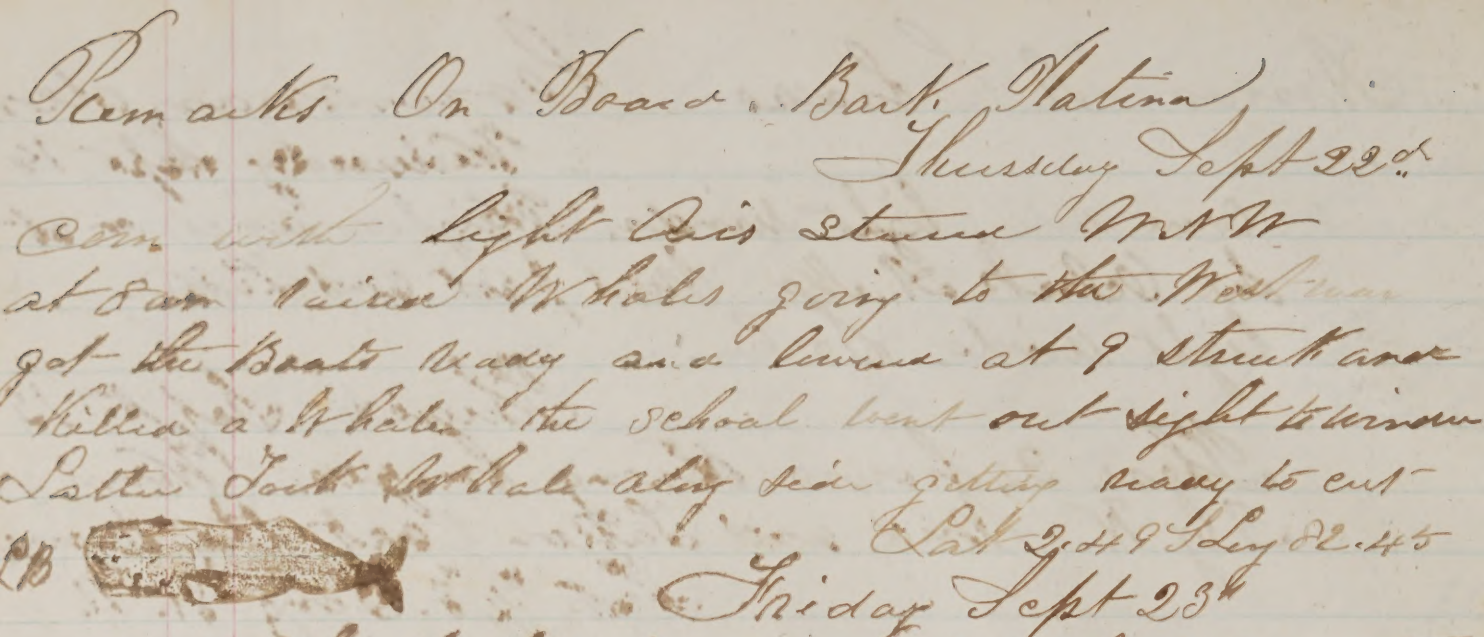 Remarks On Board Bark Platina
Thursday Sept 22d
Com with light Airs steared WNW
at 8 am raised Whales going to the Westward
got the Boats ready and lowered at 9 struck and
Killed a Whale the school went out sight to windward
Latter Took Whale along side getting ready to cut
Lat 2.49 S Long 82.45
LB
Friday Sept 23d